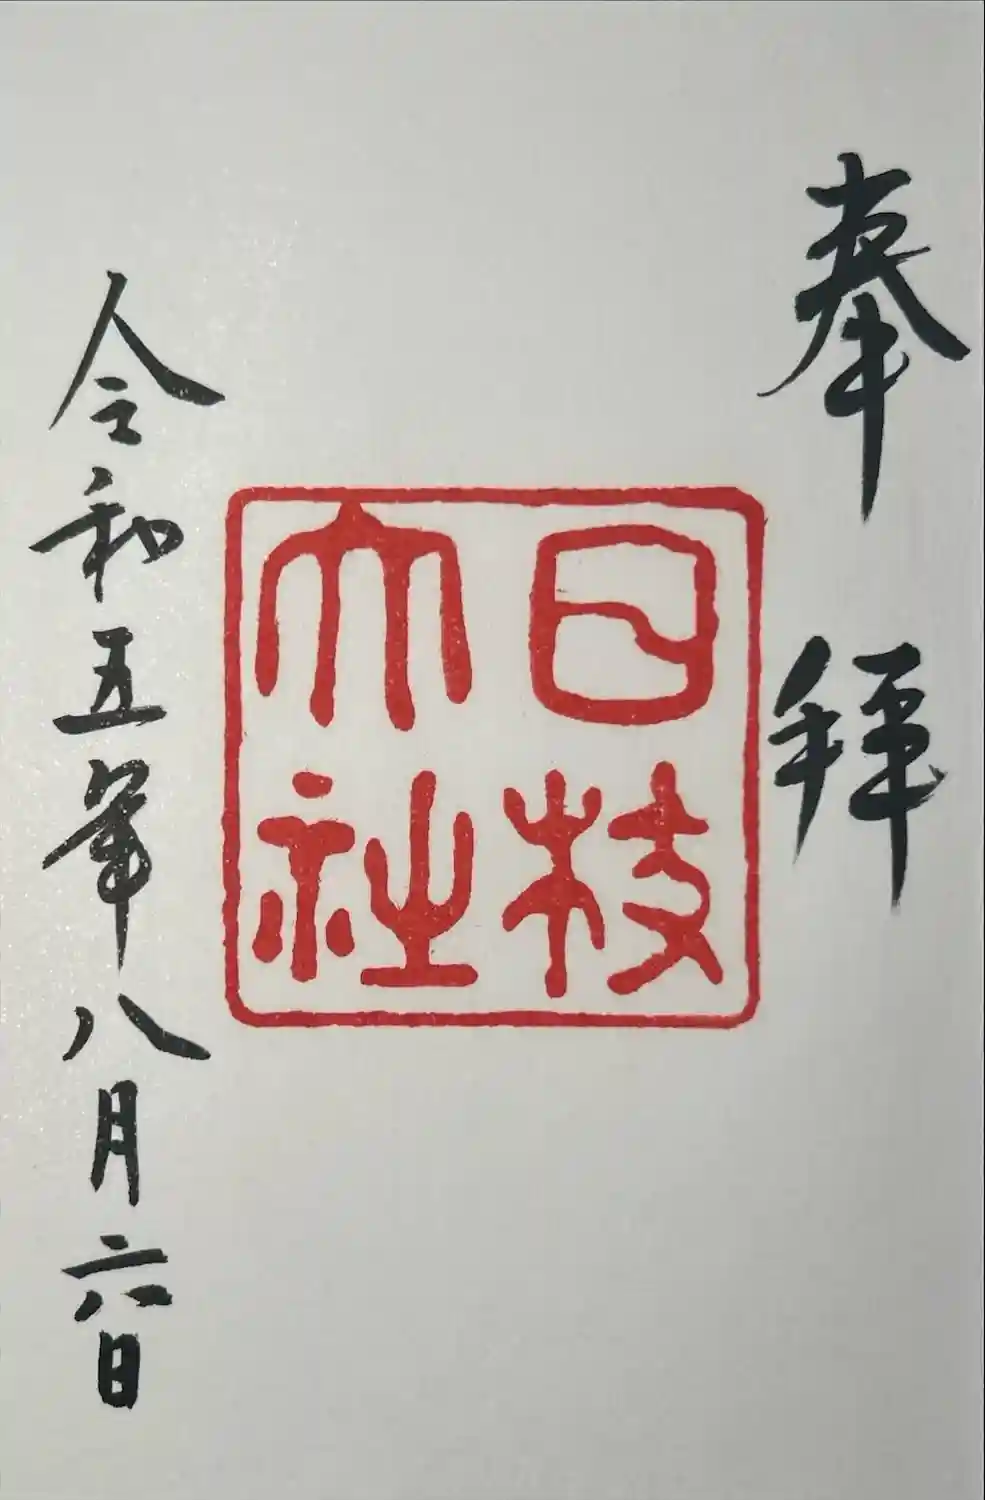 奉拝
日枝
大社
令和五年八月六日